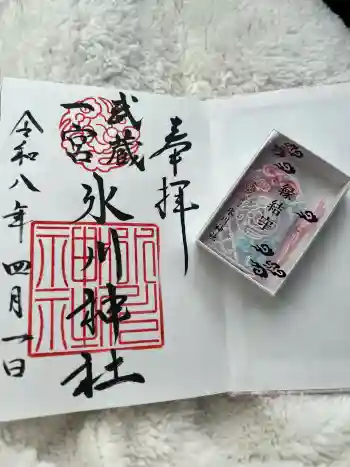 奉拝
武蔵
一宮
氷川神社
令和八年四月一日
氷川神社
縁結